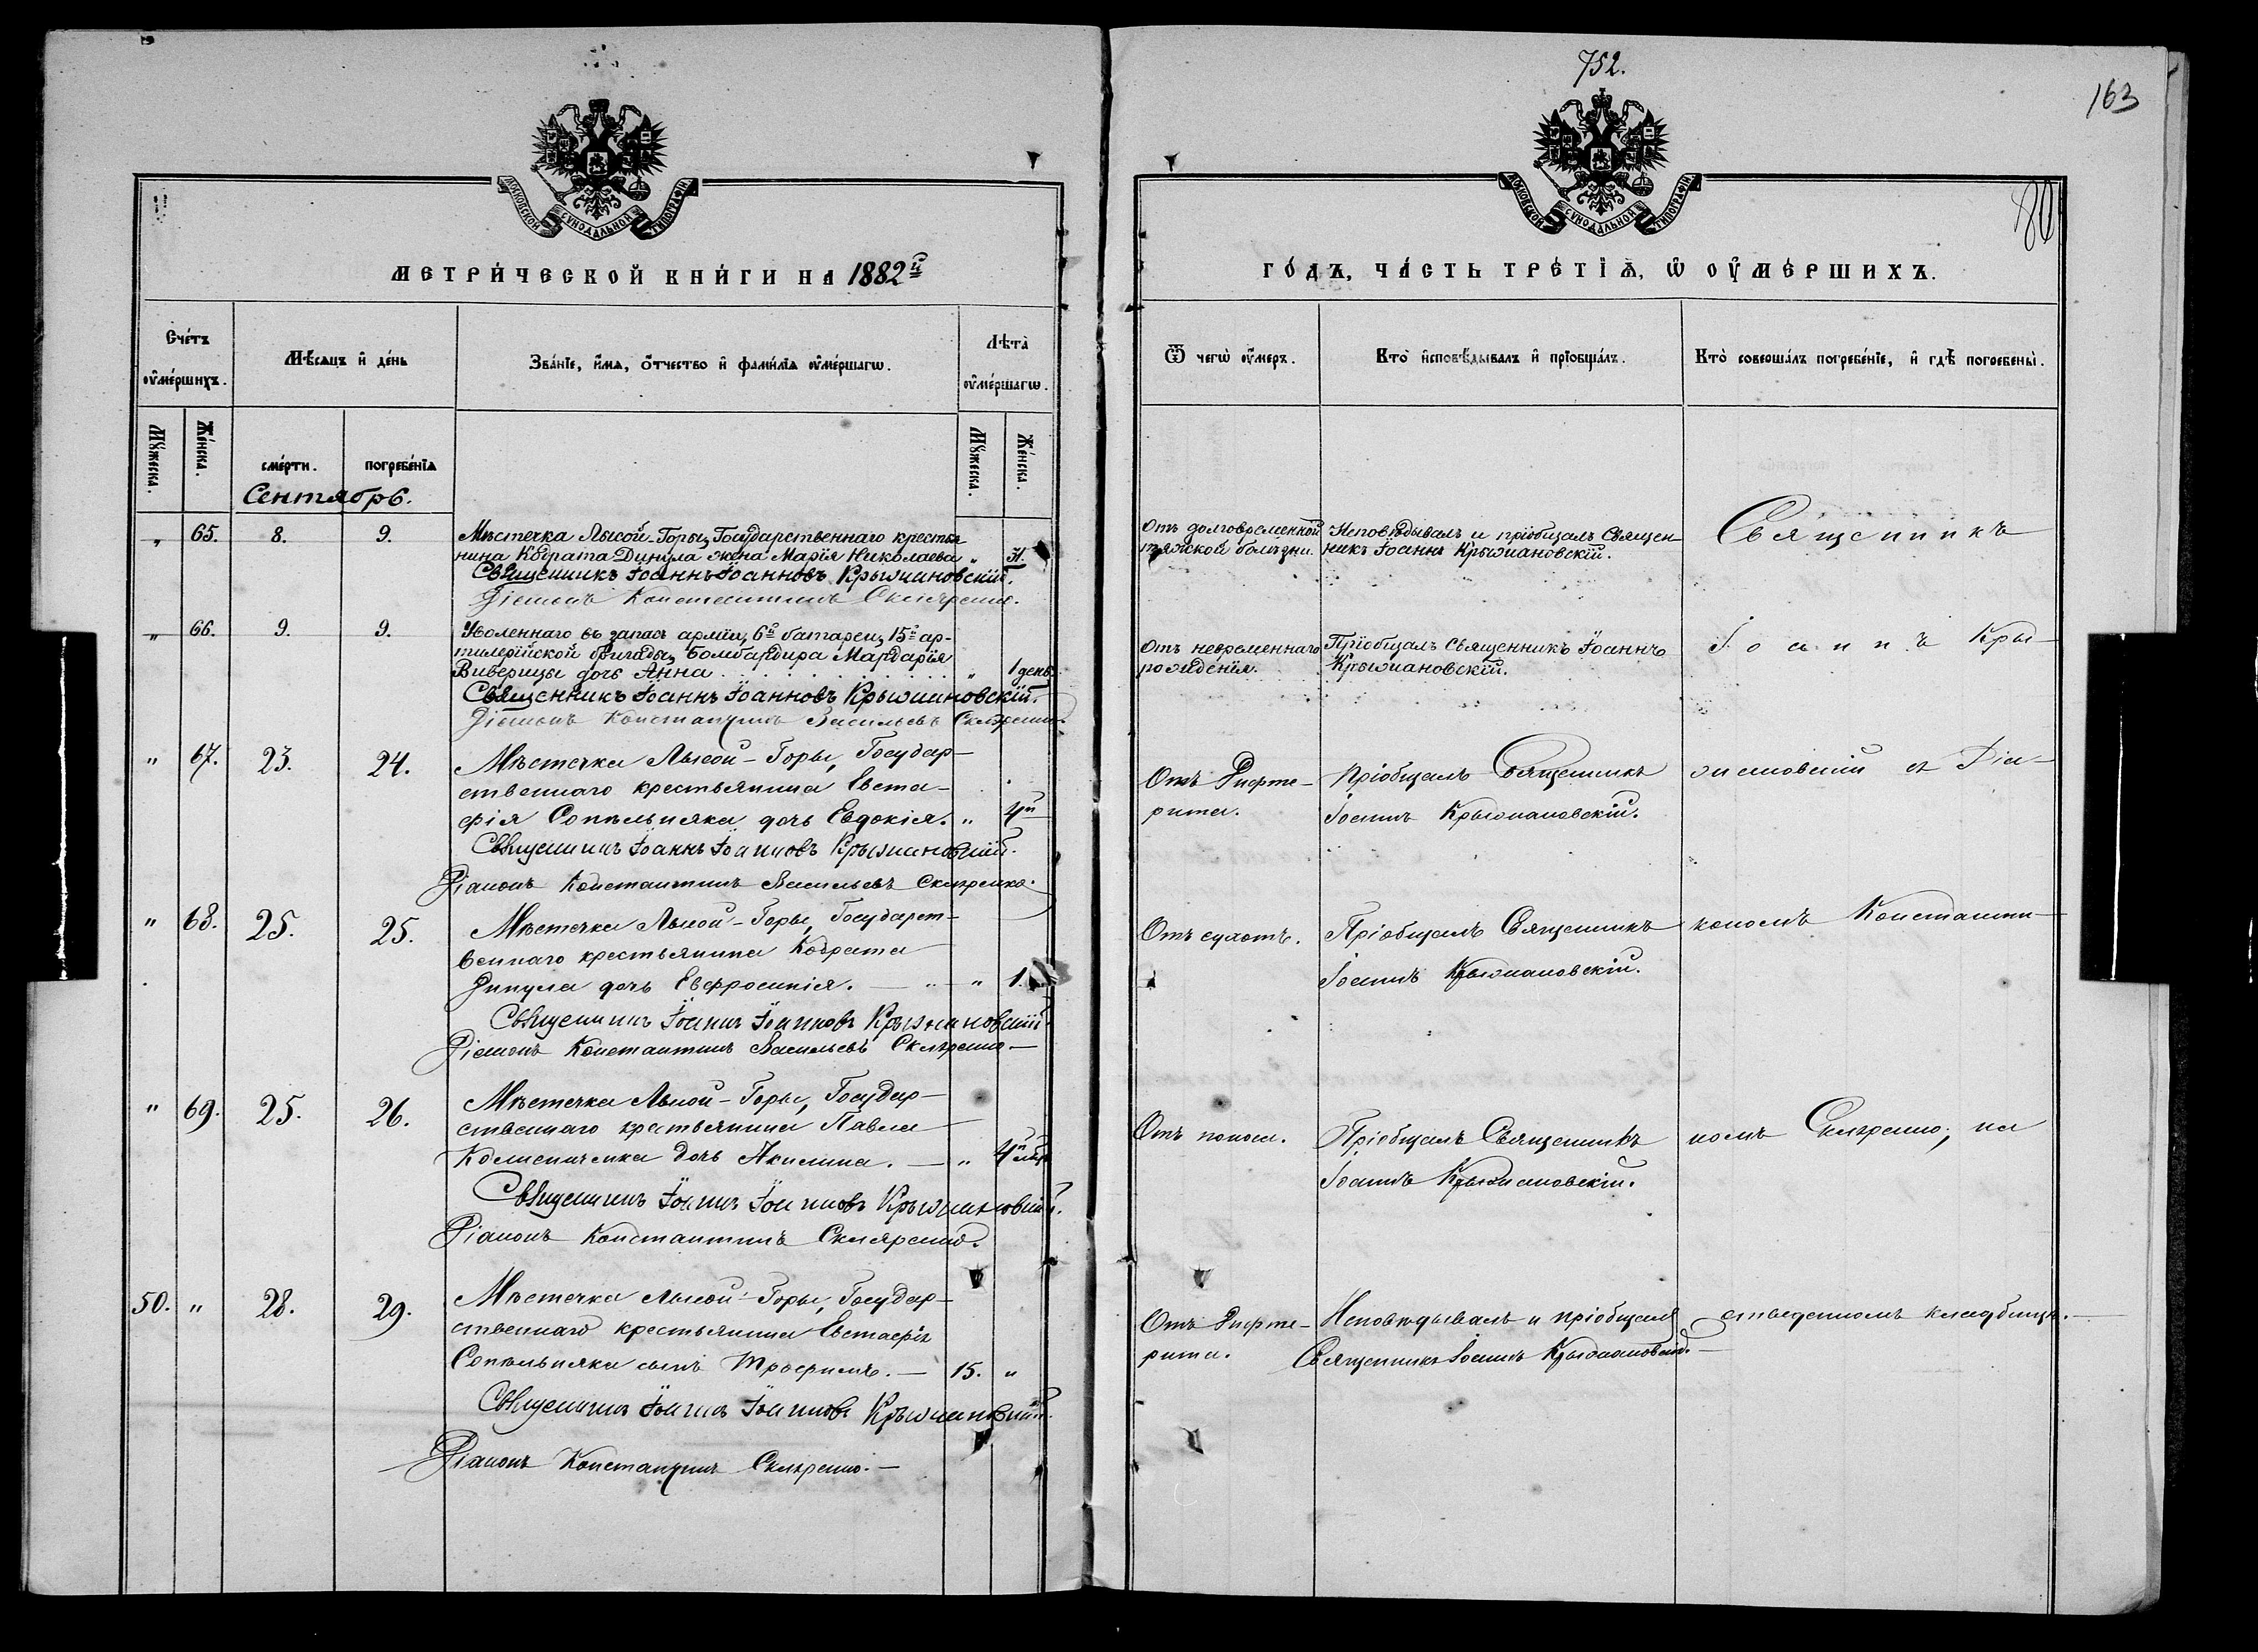 752.
163
80
МОСКОВСКОЙ СѴНОДАЛЬНОЙ ТИПОГРАФІИ
МОСКОВСКОЙ СѴНОДАЛЬНОЙ ТИПОГРАФІИ
МЕТРИ́ЧЕСКОЙ КНИ́ГИ НА 1882й
ГО́ДЪ, ЧА́СТЬ ТРЕ́ТІѦ, Ѡ ОУМЕ́РШИХЪ.
Сче́тъ оуме́ршихъ.
Мѣ́сяцъ и де́нь
Зва́ніе, и́мѧ, о́тчество и фами́лїѧ оуме́ршагѡ.
Лѣта̀ оуме́ршагѡ.
Ѿ чегѡ̀ оу́меръ.
Кто̀ исповѣ́дывалъ и прїобща́лъ.
Кто̀ соверша́лъ погребе́нїе, и гдѣ̀ погребены̀.
Мꙋ́жеска.
Же́нска.
сме́рти.
погребе́нїѧ
Мꙋ́жеска.
Же́нска.
Сентябрь.
„ 65. 8. 9.
Мѣстечка Лысой-Горы, Государственнаго крестья-
нина Кодрата Динула жена Марія Николаева „
Священникъ Іоаннъ Іоанновъ Крыжановскій.
Діаконъ Константинъ Скляренко.
Отъ долговременной
тяжкой болѣзни.
Исповѣдывалъ и пріобщалъ Священ-
никъ Іоаннъ Крыжановскій.
Священникъ
„ 66. 9. 9.
Уволеннаго въ запасъ арміи, 6й батареи, 15й ар-
тилерійской бригады, Бомбардира Мардарія
Виверицы дочь Анна . . . „ 1 день
Священникъ Іоаннъ Іоанновъ Крыжановскій.
Діаконъ Константинъ Васильевъ Скляренко.
Отъ невременнаго
рожденія.
Пріобщалъ Священникъ Іоаннъ
Крыжановскій.
Іоаннъ Кры-
„ 67. 23. 24.
Мѣстечка Лысой-Горы, Государ-
ственнаго крестьянина Евста-
фія Сопѣльняка дочь Евдокія. „ 4
Священникъ Іоаннъ Іоанновъ Крыжановскій.
Діаконъ Константинъ Васильевъ Скляренко.
Отъ Дифте-
рита.
Пріобщалъ Священникъ
Іоаннъ Крыжановскій.
жановскій съ Діа-
„ 68. 25. 25.
Мѣстечка Лысой-Горы, Государст-
веннаго крестьянина Кодрата
Динула дочь Евфросинія. — „ 1.
Священникъ Іоаннъ Іоанновъ Крыжановскій
Діаконъ Константинъ Васильевъ Скляренко.—
Отъ сухотъ.
Пріобщалъ Священникъ
Іоаннъ Крыжановскій.
кономъ Константи-
„ 69. 25. 26.
Мѣстечка Лысой-Горы, Государ-
ственнаго крестьянина Павла
дочь Акилина. — „ 4
Священникъ Іоаннъ Іоанновъ Крыжановскій.
Діаконъ Константинъ Скляренко.
Отъ поноса.
Пріобщалъ Священникъ
Іоаннъ Крыжановскій.
номъ Скляренко, на
50. „ 28. 29.
Мѣстечка Лысой-Горы, Государ-
ственнаго крестьянина Евстафія
Сопѣльняка сынъ Трофимъ. — 15. „
Священникъ Іоаннъ Іоанновъ Крыжановскій.
Діаконъ Константинъ Скляренко.—
Отъ Дифте-
рита.
Исповѣдывалъ и пріобщалъ
Священникъ Іоаннъ Крыжановскій.—
отведенномъ кладбищѣ.—